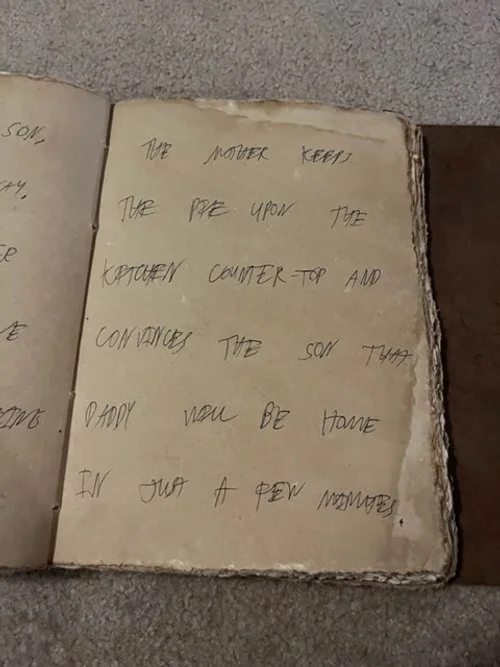 SON.
THE MOTHER KEEPS
THE PIE UPON THE
KITCHEN COUNTER-TOP AND
CONVINCES THE SON THAT
DADDY WILL BE HOME
IN JUST A FEW MINUTES